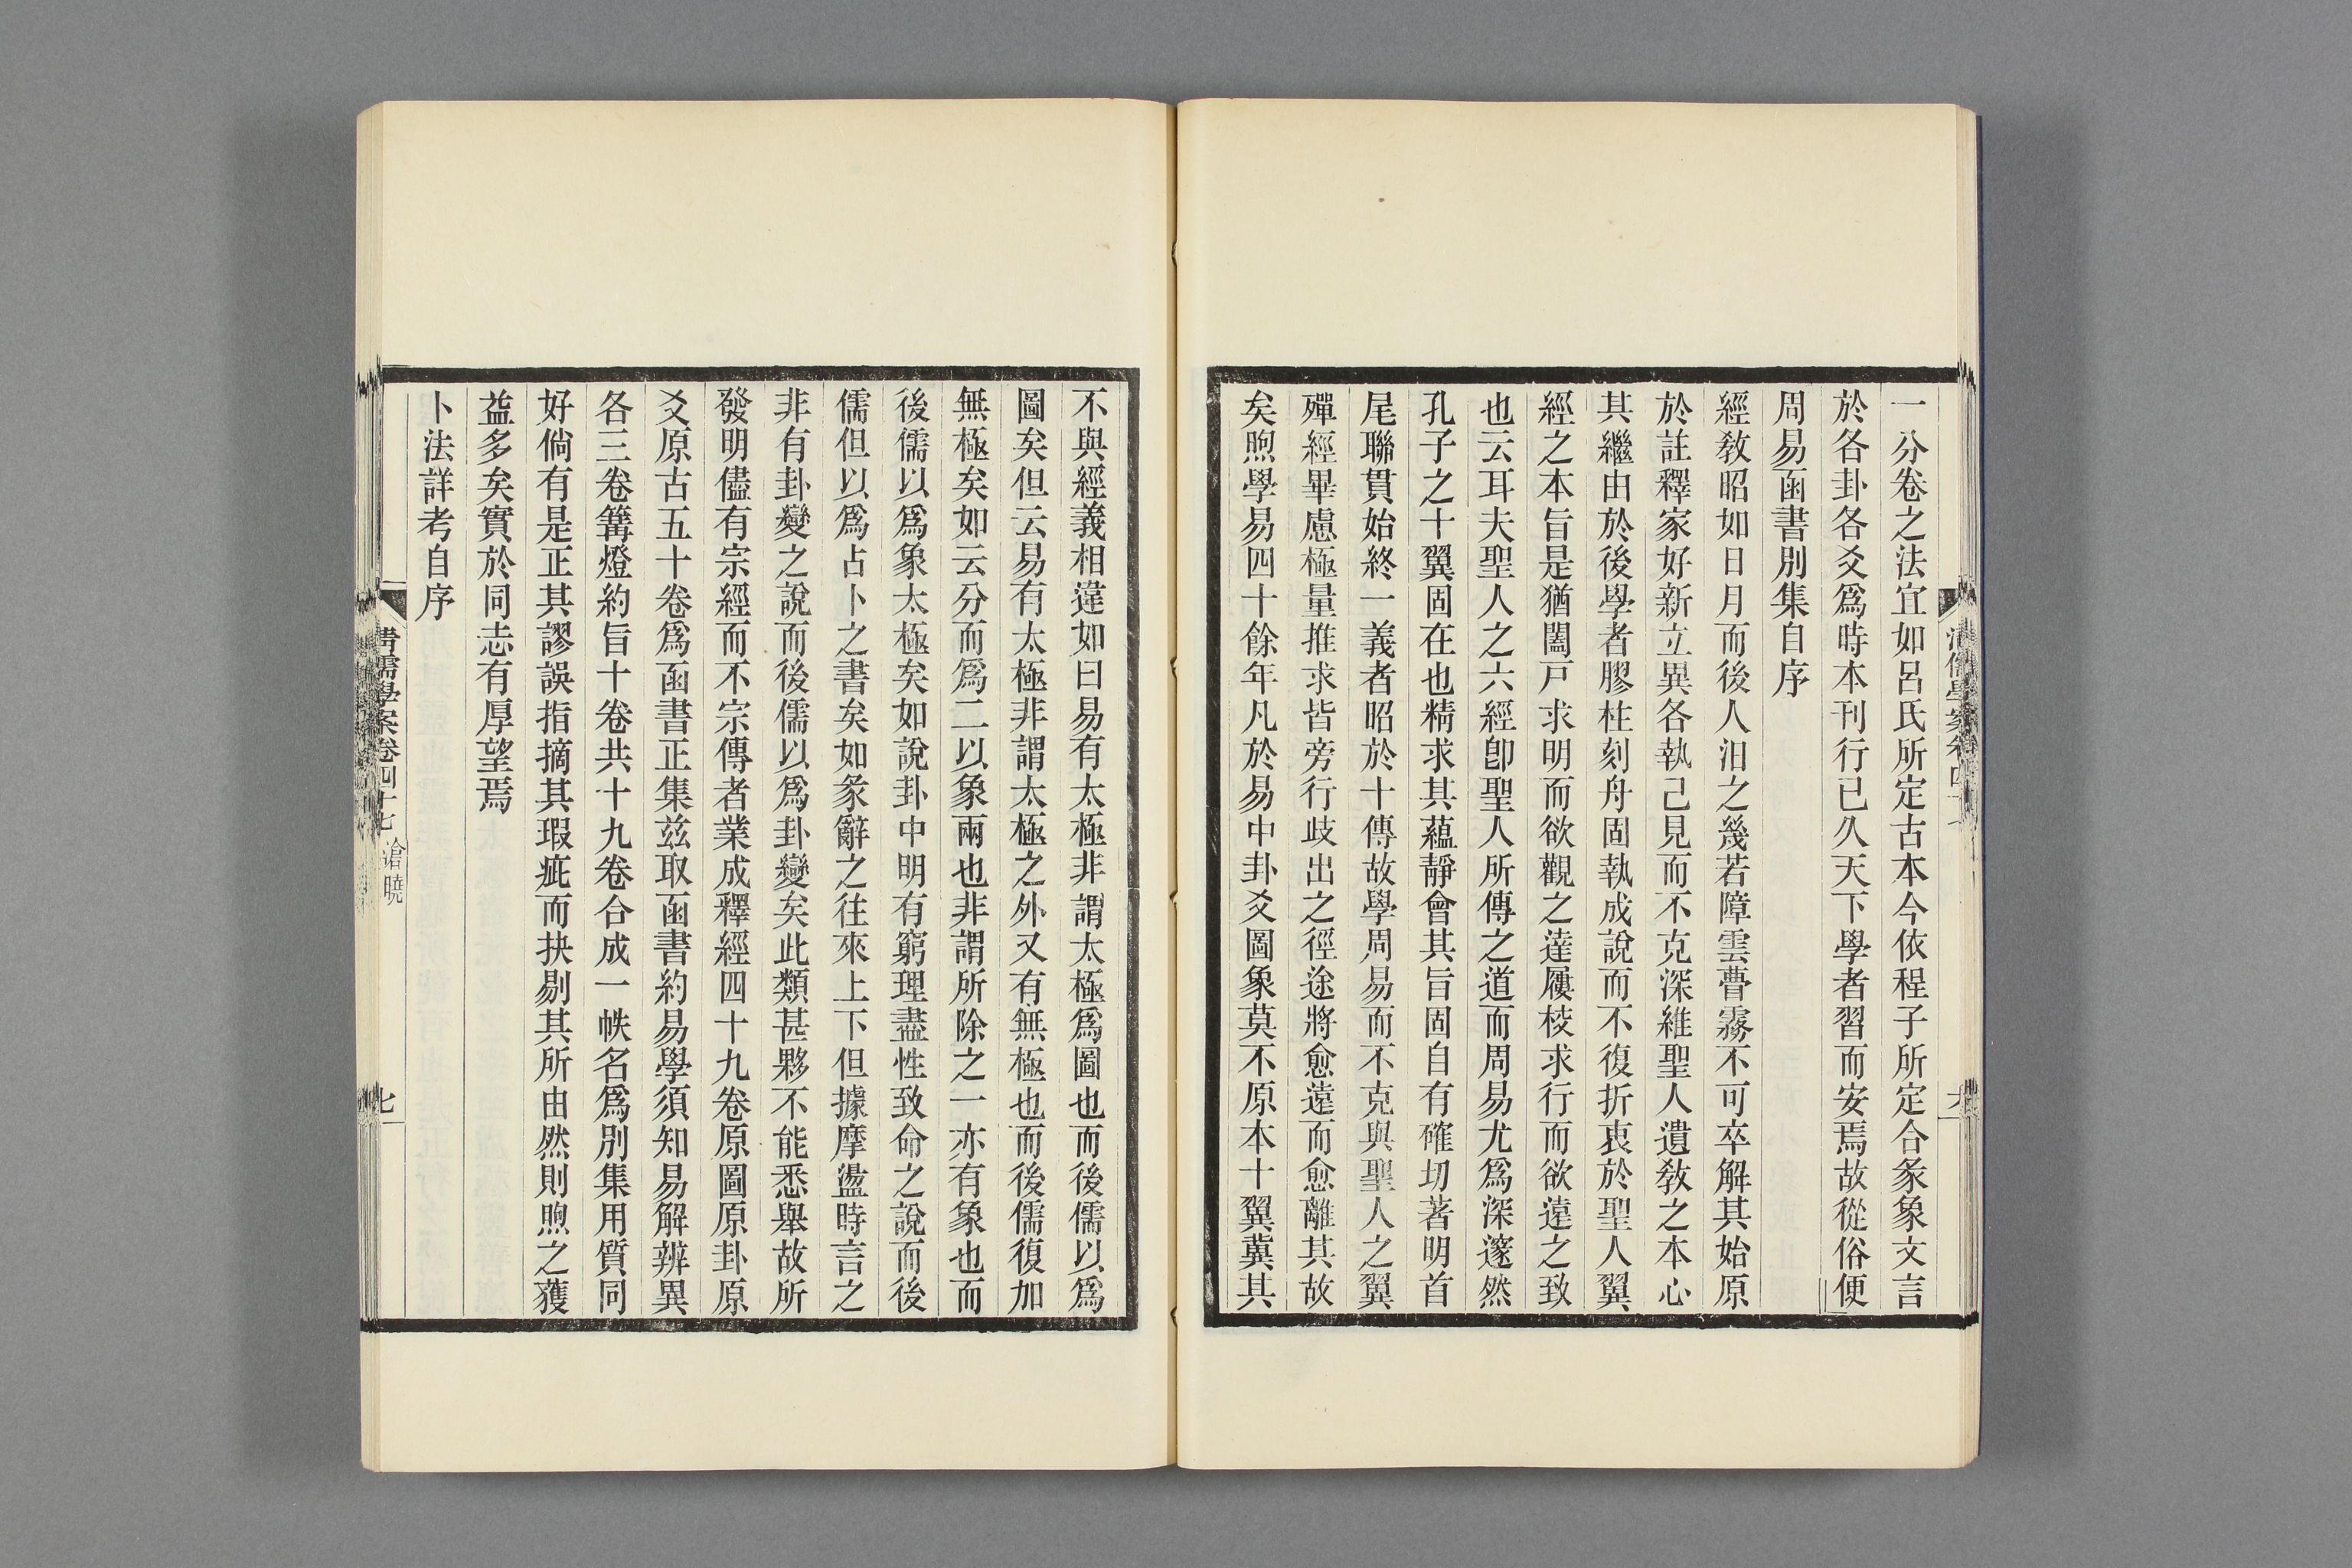 一分卷之法宜如呂氏所定古本今依程子所定合彖象文言
於各卦各爻爲時本刊行已久天下學者習而安焉故從俗便
周易函書別集自序
經教昭如日月而後人汨之幾若障雲瞢霧不可卒解其始原
於註釋家好新立異各執己見而不克深維聖人遺教之本心
其繼由於後學者膠柱刻舟固執成說而不復折衷於聖人翼
經之本旨是猶闔戸求明而欲觀之達屨校求行而欲遠之致
也云耳夫聖人之六經卽聖人所傳之道而周易尤爲深邃然
孔子之十翼固在也精求其蘊靜會其旨固自有確切著明首
尾聯貫始終一義者昭於十傳故學周易而不克與聖人之翼
殫經畢慮極量推求皆旁行歧出之徑途將愈遠而愈離其故
矣煦學易四十餘年凡於易中卦爻圖象莫不原本十翼冀其
不與經義相違如曰易有太極非謂太極爲圖也而後儒以爲
圖矣但云易有太極非謂太極之外又有無極也而後儒復加
無極矣如云分而爲二以象兩也非謂所除之一亦有象也而
後儒以爲象太極矣如說卦中明有窮理盡性致命之說而後
儒但以爲占卜之書矣如彖辭之往來上下但據摩盪時言之
非有卦變之說而後儒以爲卦變矣此類甚夥不能悉舉故所
發明儘有宗經而不宗傳者業成釋經四十九卷原圖原卦原
爻原古五十卷爲函書正集茲取函書約易學須知易解辨異
各三卷篝燈約旨十卷共十九卷合成一帙名爲別集用質同
好倘有是正其謬誤指摘其瑕疵而抉剔其所由然則煦之獲
益多矣實於同志有厚望焉
卜法詳考自序
清儒學案卷四十七 滄曉
七